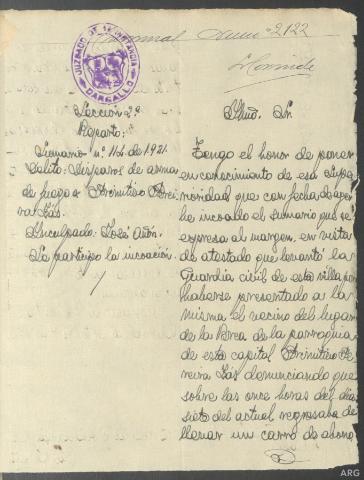 Num 2122
JUZGADO DE 1ª INSTANCIA
CARBALLO
Sección 2ª
Reparto:
Sumario nº 114 de 1921
Delito: Disparos de arma
de fuego a Primitivo Perei
ra Lás.
Inculpado: José Añón.
Se participa la incoación.
Iltmo. Sr.
Tengo el honor de poner
en conocimiento de esa Supe
rioridad que con fecha de ayer
he incoado el sumario que se
expresa al margen, en vista
de atestado que levantó la
Guardia civil de esta villa por
haberse presentado a la
misma el vecino del lugar
de la Brea de la parroquia
de esta capital Primitivo Pe
reira Lás denunciando que
sobre las once horas del día
siete del actual regresaba de
llevar un carro de abono
ARG